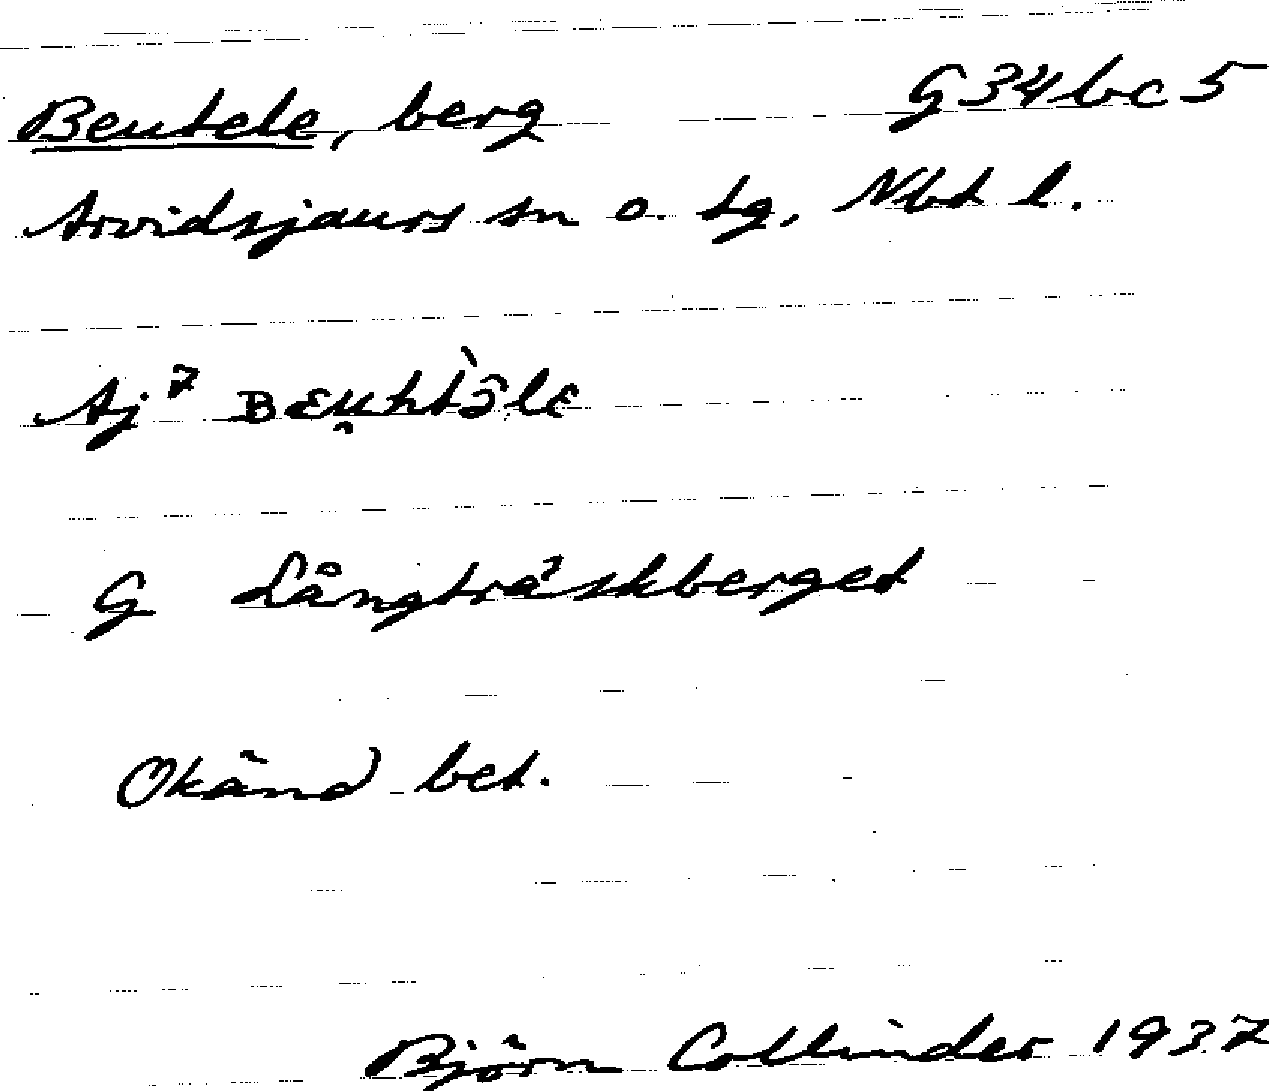 Beutele, berg G34bc5
Arvidsjaurs sn o. tg, Nbt l.
Aj 7
G Långträskberget
Okänd bet.
Björn Collinder 1937